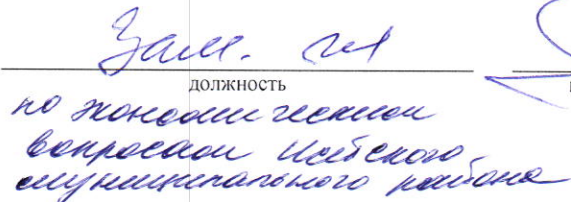 Зам. гл
должность
по экономическим
вопросам
муниципального района